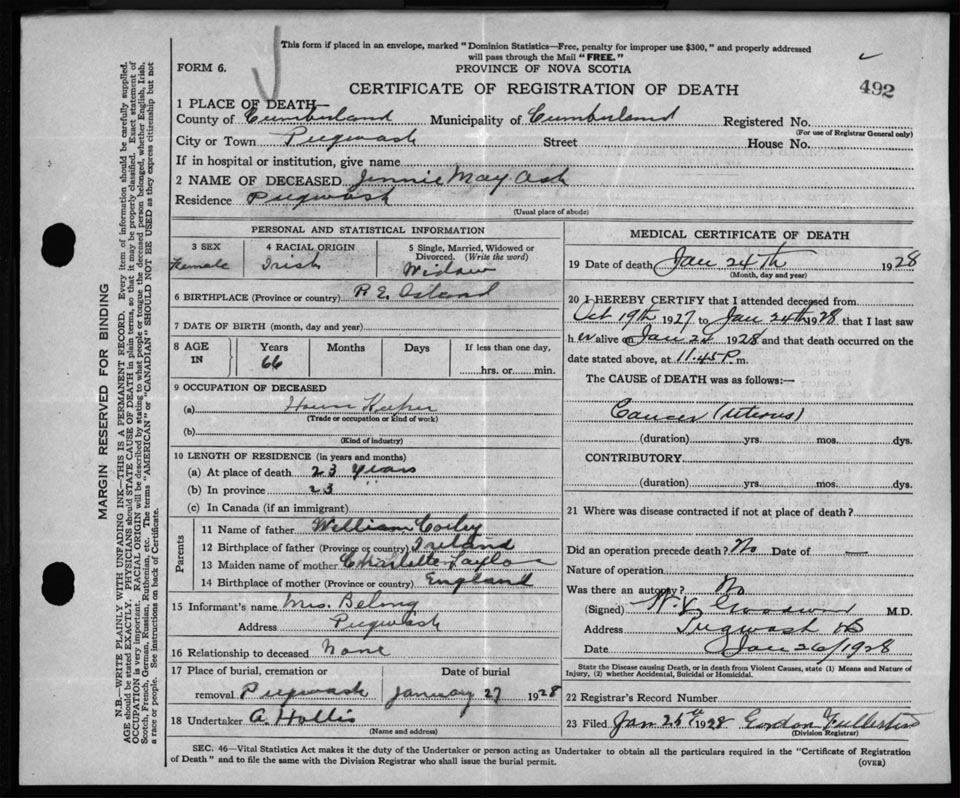 This form if placed in an envelope, marked "Dominion Statistics—Free, penalty for improper use $300," and properly addressed
will pass through the Mail "FREE."
FORM 6.
PROVINCE OF NOVA SCOTIA
CERTIFICATE OF REGISTRATION OF DEATH
492
1 PLACE OF DEATH—
County of Cumberland Municipality of Cumberland Registered No.
(For use of Registrar General only)
City or Town Pugwash Street House No.
If in hospital or institution, give name
2 NAME OF DECEASED Jennie May Ash
Residence Pugwash
(Usual place of abode)
PERSONAL AND STATISTICAL INFORMATION
3 SEX 4 RACIAL ORIGIN 5 Single, Married, Widowed or Divorced. (Write the word)
Female Irish Widow
6 BIRTHPLACE (Province or country) P. E. Island
7 DATE OF BIRTH (month, day and year)
8 AGE IN Years Months Days If less than one day,
66 hrs. or min.
9 OCCUPATION OF DECEASED
(a) House Keeper
(Trade or occupation or kind of work)
(b)
(Kind of industry)
10 LENGTH OF RESIDENCE (in years and months)
(a) At place of death 23 years
(b) In province 23 "
(c) In Canada (if an immigrant)
Parents
11 Name of father William
12 Birthplace of father (Province or country) Ireland
13 Maiden name of mother Charlotte Taylor
14 Birthplace of mother (Province or country) England
15 Informant's name Mrs.
Address Pugwash
16 Relationship to deceased None
17 Place of burial, cremation or Date of burial
removal Pugwash January 27 1928
18 Undertaker A. Hollis
(Name and address)
MEDICAL CERTIFICATE OF DEATH
19 Date of death Jan 24th 1928
(Month, day and year)
20 I HEREBY CERTIFY that I attended deceased from
Oct 19th 1927 to Jan 24th 1928 that I last saw
h er alive on Jan 24 1928 and that death occurred on the
date stated above, at 11.45 P. m.
The CAUSE of DEATH was as follows:—
Cancer (uterus)
(duration) yrs. mos. dys.
CONTRIBUTORY.
(duration) yrs. mos. dys.
21 Where was disease contracted if not at place of death?
Did an operation precede death? No Date of —
Nature of operation
Was there an autopsy? No
(Signed) M.D.
Address Pugwash NS
Date Jan 26/1928
State the Disease causing Death, or in death from Violent Causes, state (1) Means and Nature of
Injury, (2) whether Accidental, Suicidal or Homicidal.
22 Registrar's Record Number
23 Filed Jan 26th 1928 Gordon Fullerton
(Division Registrar)
SEC. 46—Vital Statistics Act makes it the duty of the Undertaker or person acting as Undertaker to obtain all the particulars required in the "Certificate of Registration
of Death" and to file the same with the Division Registrar who shall issue the burial permit.
(OVER)
MARGIN RESERVED FOR BINDING
N.B.—WRITE PLAINLY WITH UNFADING INK—THIS IS A PERMANENT RECORD. Every item of information should be carefully supplied.
AGE should be stated EXACTLY. PHYSICIANS should STATE CAUSE OF DEATH in plain terms, so that it may be properly classified. Exact statement of
OCCUPATION is very important. RACIAL ORIGIN will be described by stating to what people or tongue the deceased person belonged, whether English, Irish,
Scotch, French, German, Russian, Ruthenian, etc. The terms "AMERICAN" or "CANADIAN" SHOULD NOT BE USED as they express citizenship but not
a race or people. See instructions on back of Certificate.